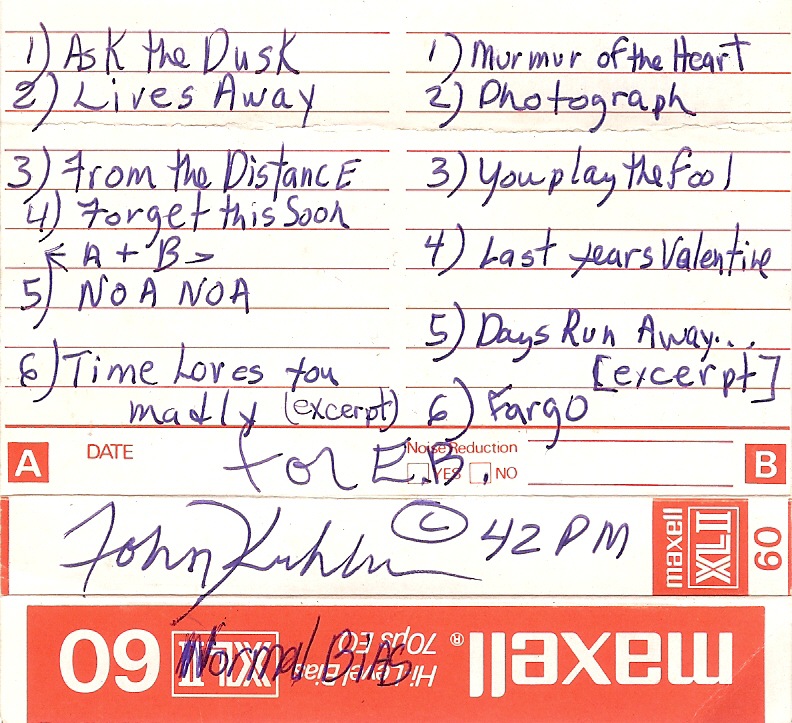 1) Ask the Dusk
2) Lives Away
3) From the Distance
4) Forget this Soon
← A + B →
5) NOA NOA
6) Time Loves you
madly (excerpt)
1) Murmur of the Heart
2) Photograph
3) You play the fool
4) Last years Valentine
5) Days Run Away...
[excerpt]
6) Fargo
A DATE
Noise Reduction
YES NO
B
for E.B.
John © 42 PM
maxell XLII 60
Normal Bias
maxell®
Hi Level Bias
70μs EQ
XLII 60